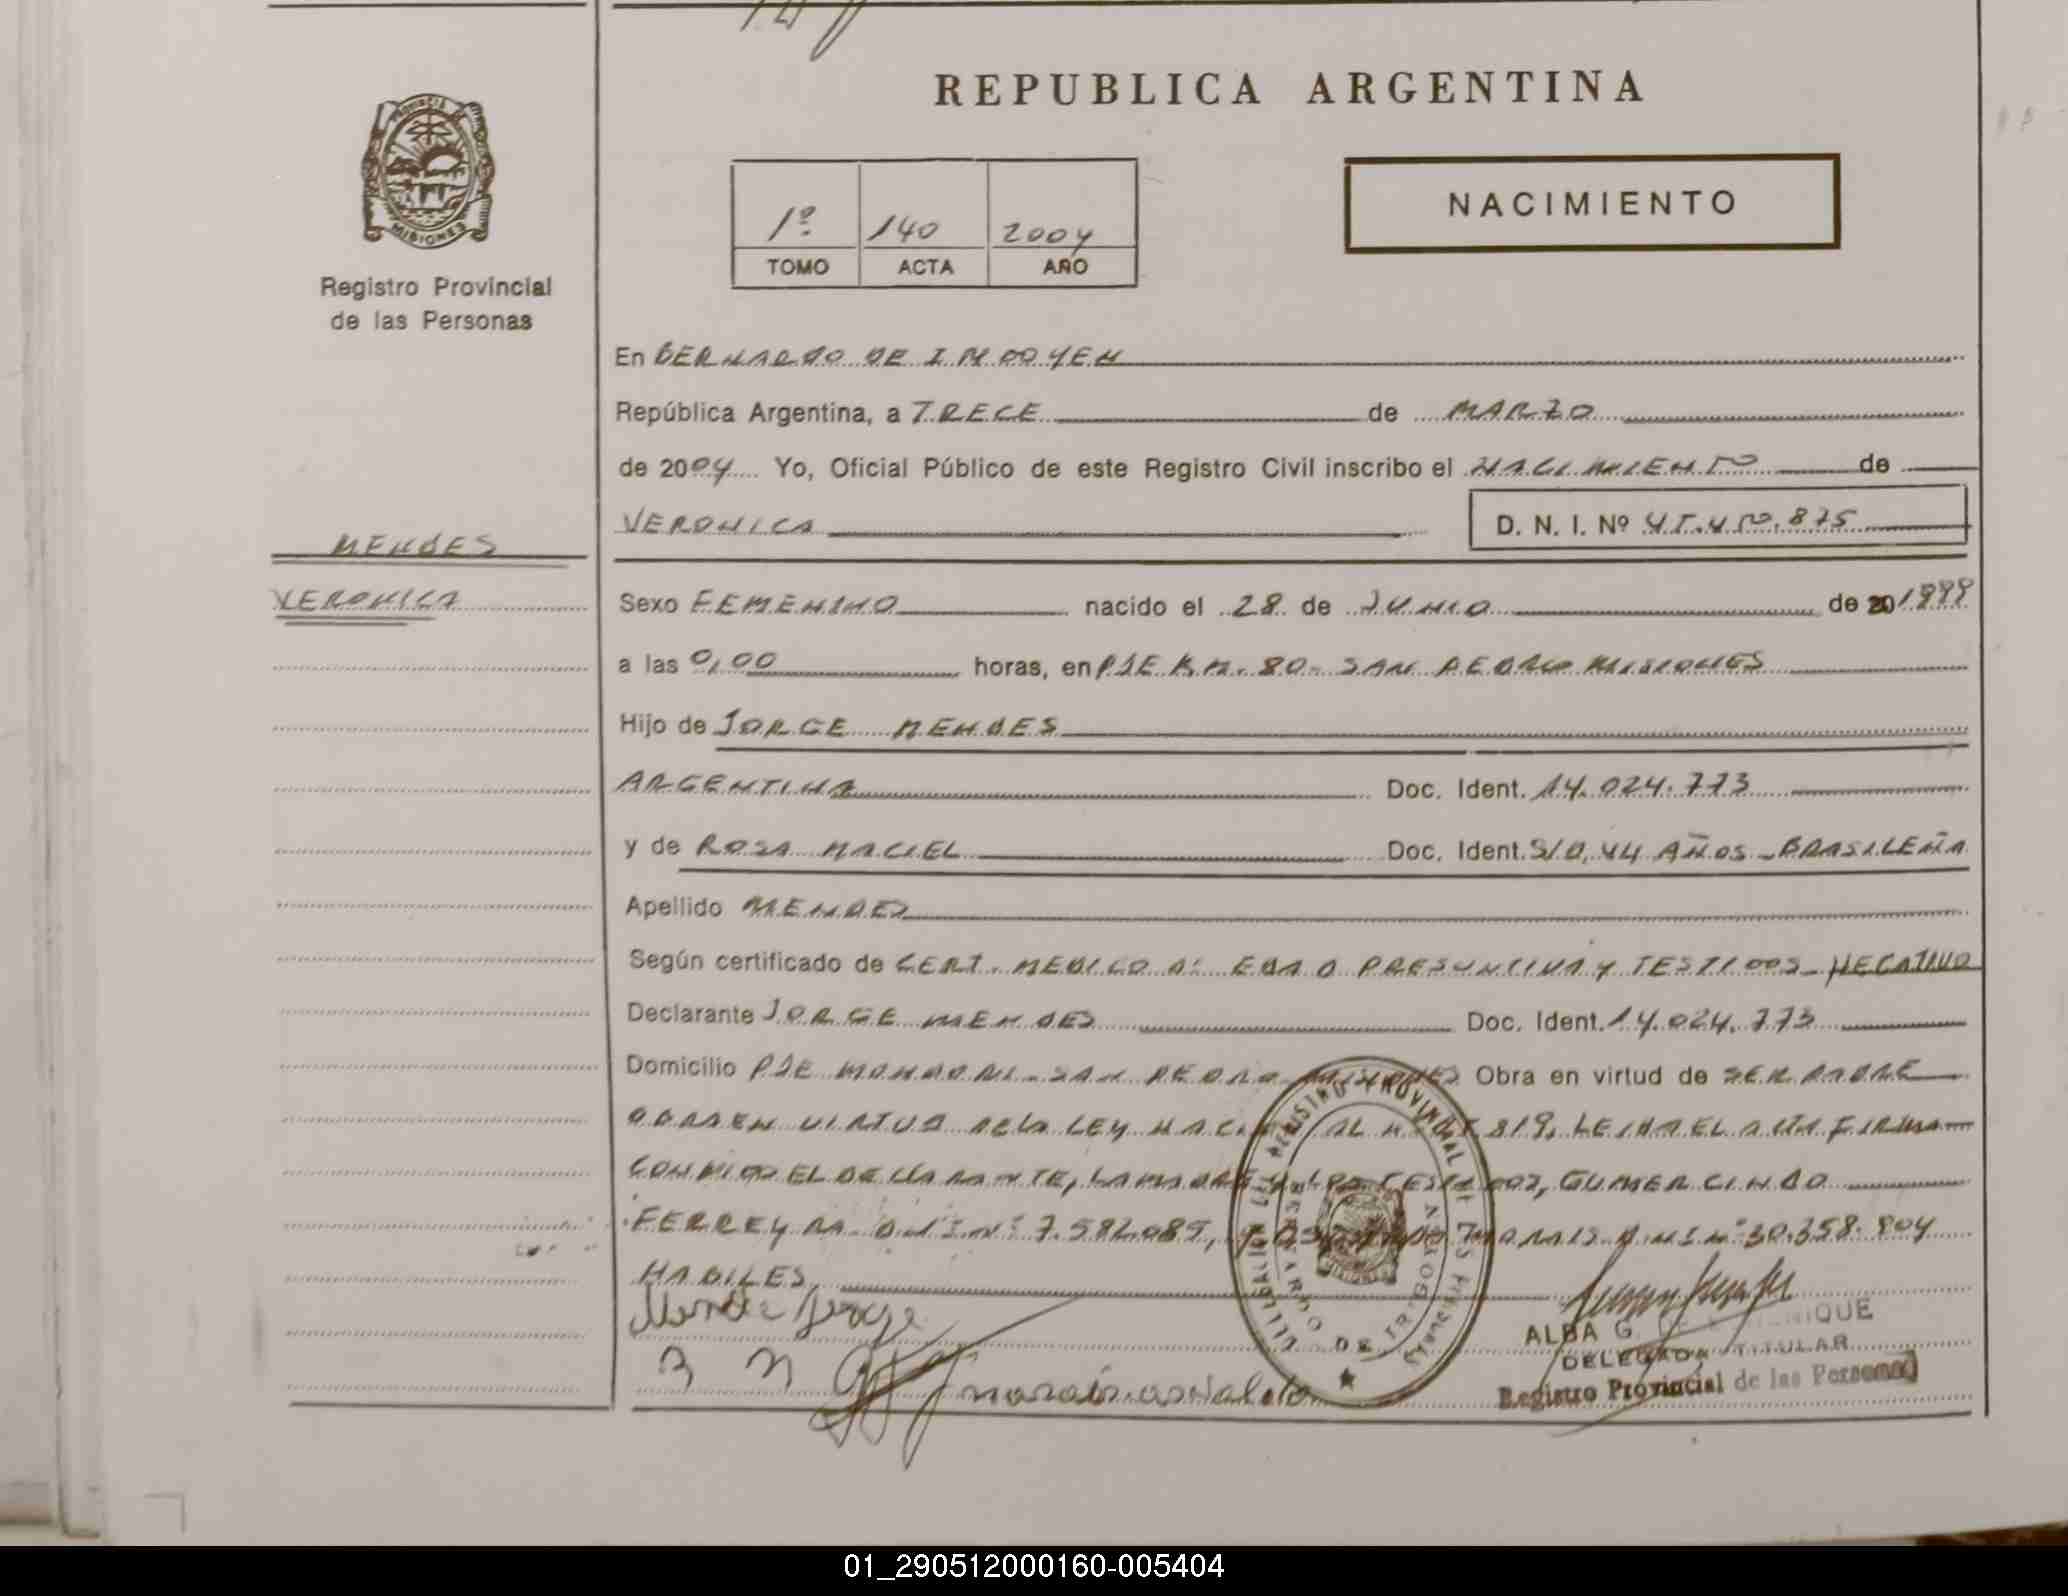 REPUBLICA ARGENTINA
PROVINCIA DE MISIONES
Registro Provincial
de las Personas
1º 140 2004
TOMO ACTA AÑO
NACIMIENTO
En BERNARDO DE IRIGOYEN
República Argentina, a TRECE de MARZO
de 2004 Yo, Oficial Público de este Registro Civil inscribo el NACIMIENTO de
VERONICA D. N. I. Nº
MENDES
VERONICA
Sexo FEMENINO nacido el 28 de JUNIO de 20 1999
a las 0,00 horas, en PJE KM. 80- SAN PEDRO MISIONES
Hijo de JORGE MENDES
ARGENTINA Doc. Ident. 14.024.773
y de ROSA MACIEL Doc. Ident. S/D, 44 AÑOS - BRASILEÑA
Apellido MENDES
Según certificado de CERT. MEDICO DE EDAD PRESUNTIVA Y TESTIGOS - NEGATIVO
Declarante JORGE MENDES Doc. Ident. 14.024.773
Domicilio PJE MONDORI - SAN PEDRO MISIONES Obra en virtud de SER PADRE
OBRA EN VIRTUD DE LA LEY NACIONAL Nº 819, LEIDA EL ACTA FIRMA
CONMIGO EL DECLARANTE, LA MADRE Y LOS TESTIGOS, GUMERCINDO
FERREYRA D.N.I.Nº 7.582.085, Y OSVALDO MORAIS D.N.I.Nº 30.358.804
HABILES
Mendes Jorge
R M morais osvaldo
ALBA G.
DELEGADA TITULAR
Registro Provincial de las Personas
REGISTRO PROVINCIAL DE LAS PERSONAS
BERNARDO DE IRIGOYEN
01_290512000160-005404